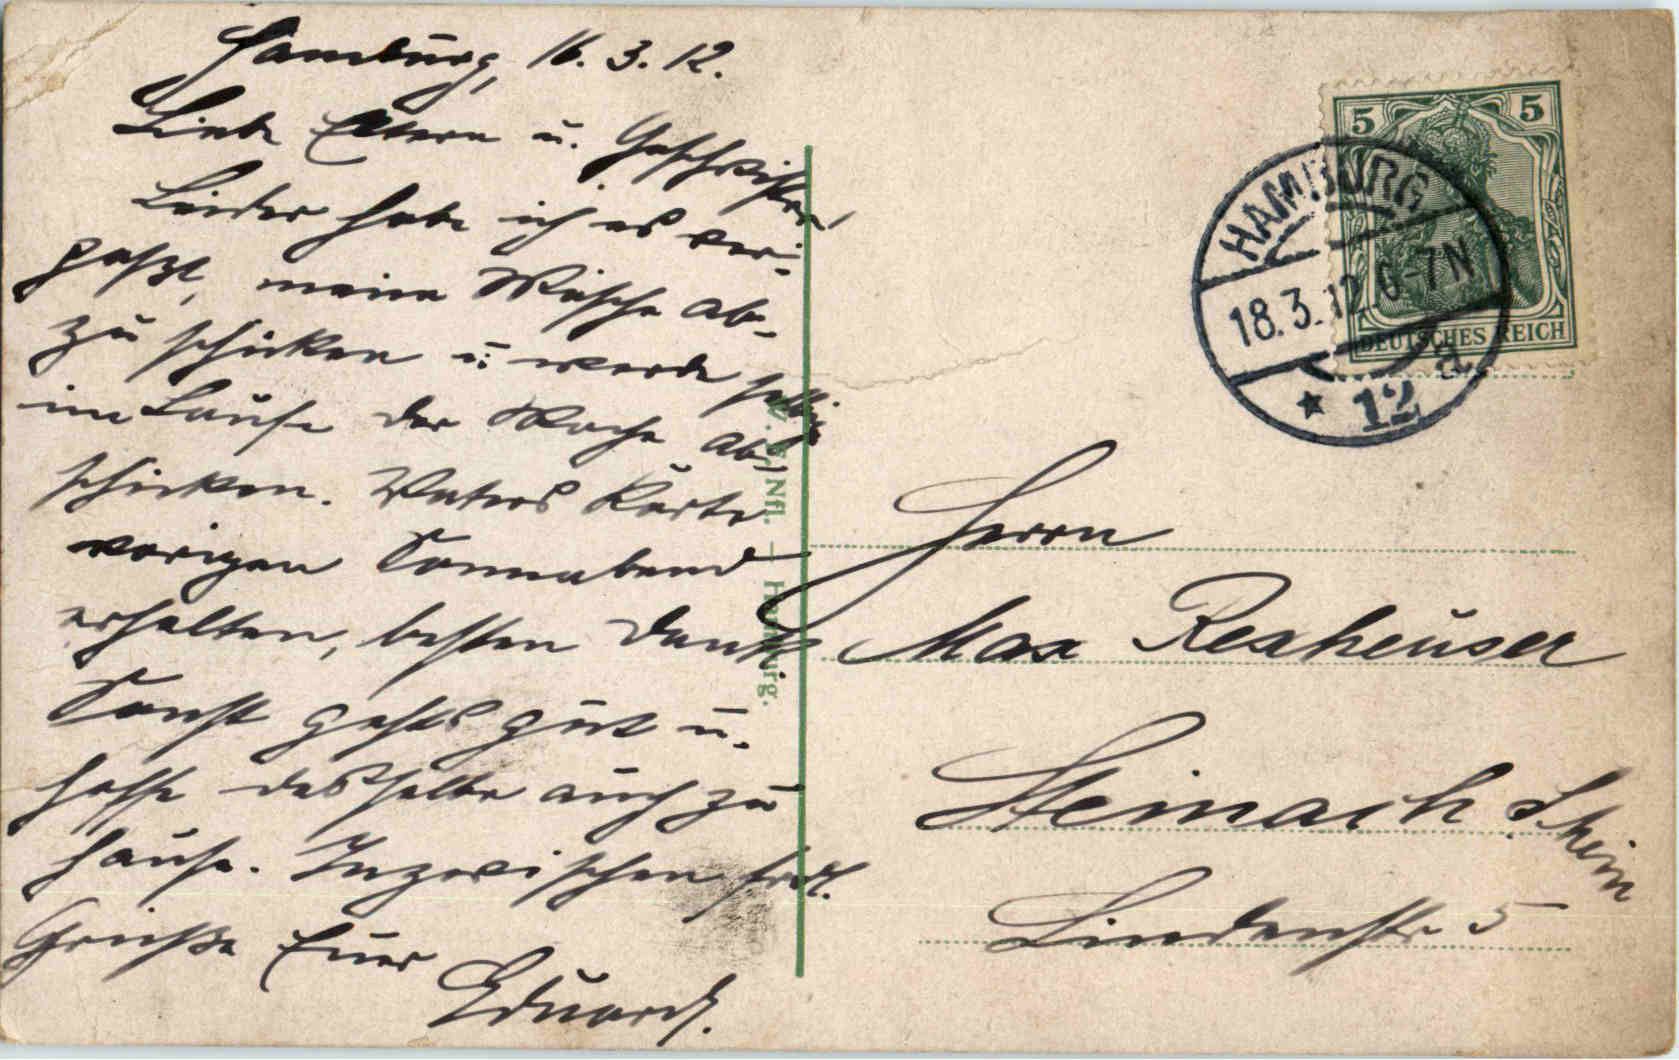 Hamburg, 16.3.12.
Liebe Eltern u. Geschwister,
Leider habe ich es ver-
paßt, meine Wäsche ab-
zuschicken u. werde selbige
im Laufe der Woche ab-
schicken. Vaters Karte
vorigen Sonnabend
erhalten, besten Dank.
Sonst geht's gut u.
hoffe dasselbe auch zu
Hause. Inzwischen frdl.
Grüße Euer
Eduard.
Nfl. — Hamburg.
5 5
DEUTSCHES REICH
HAMBURG
18.3.12.6-7N
* 12 a
Herrn
Max Rexheuser
Steinach
Lindenstr. 5